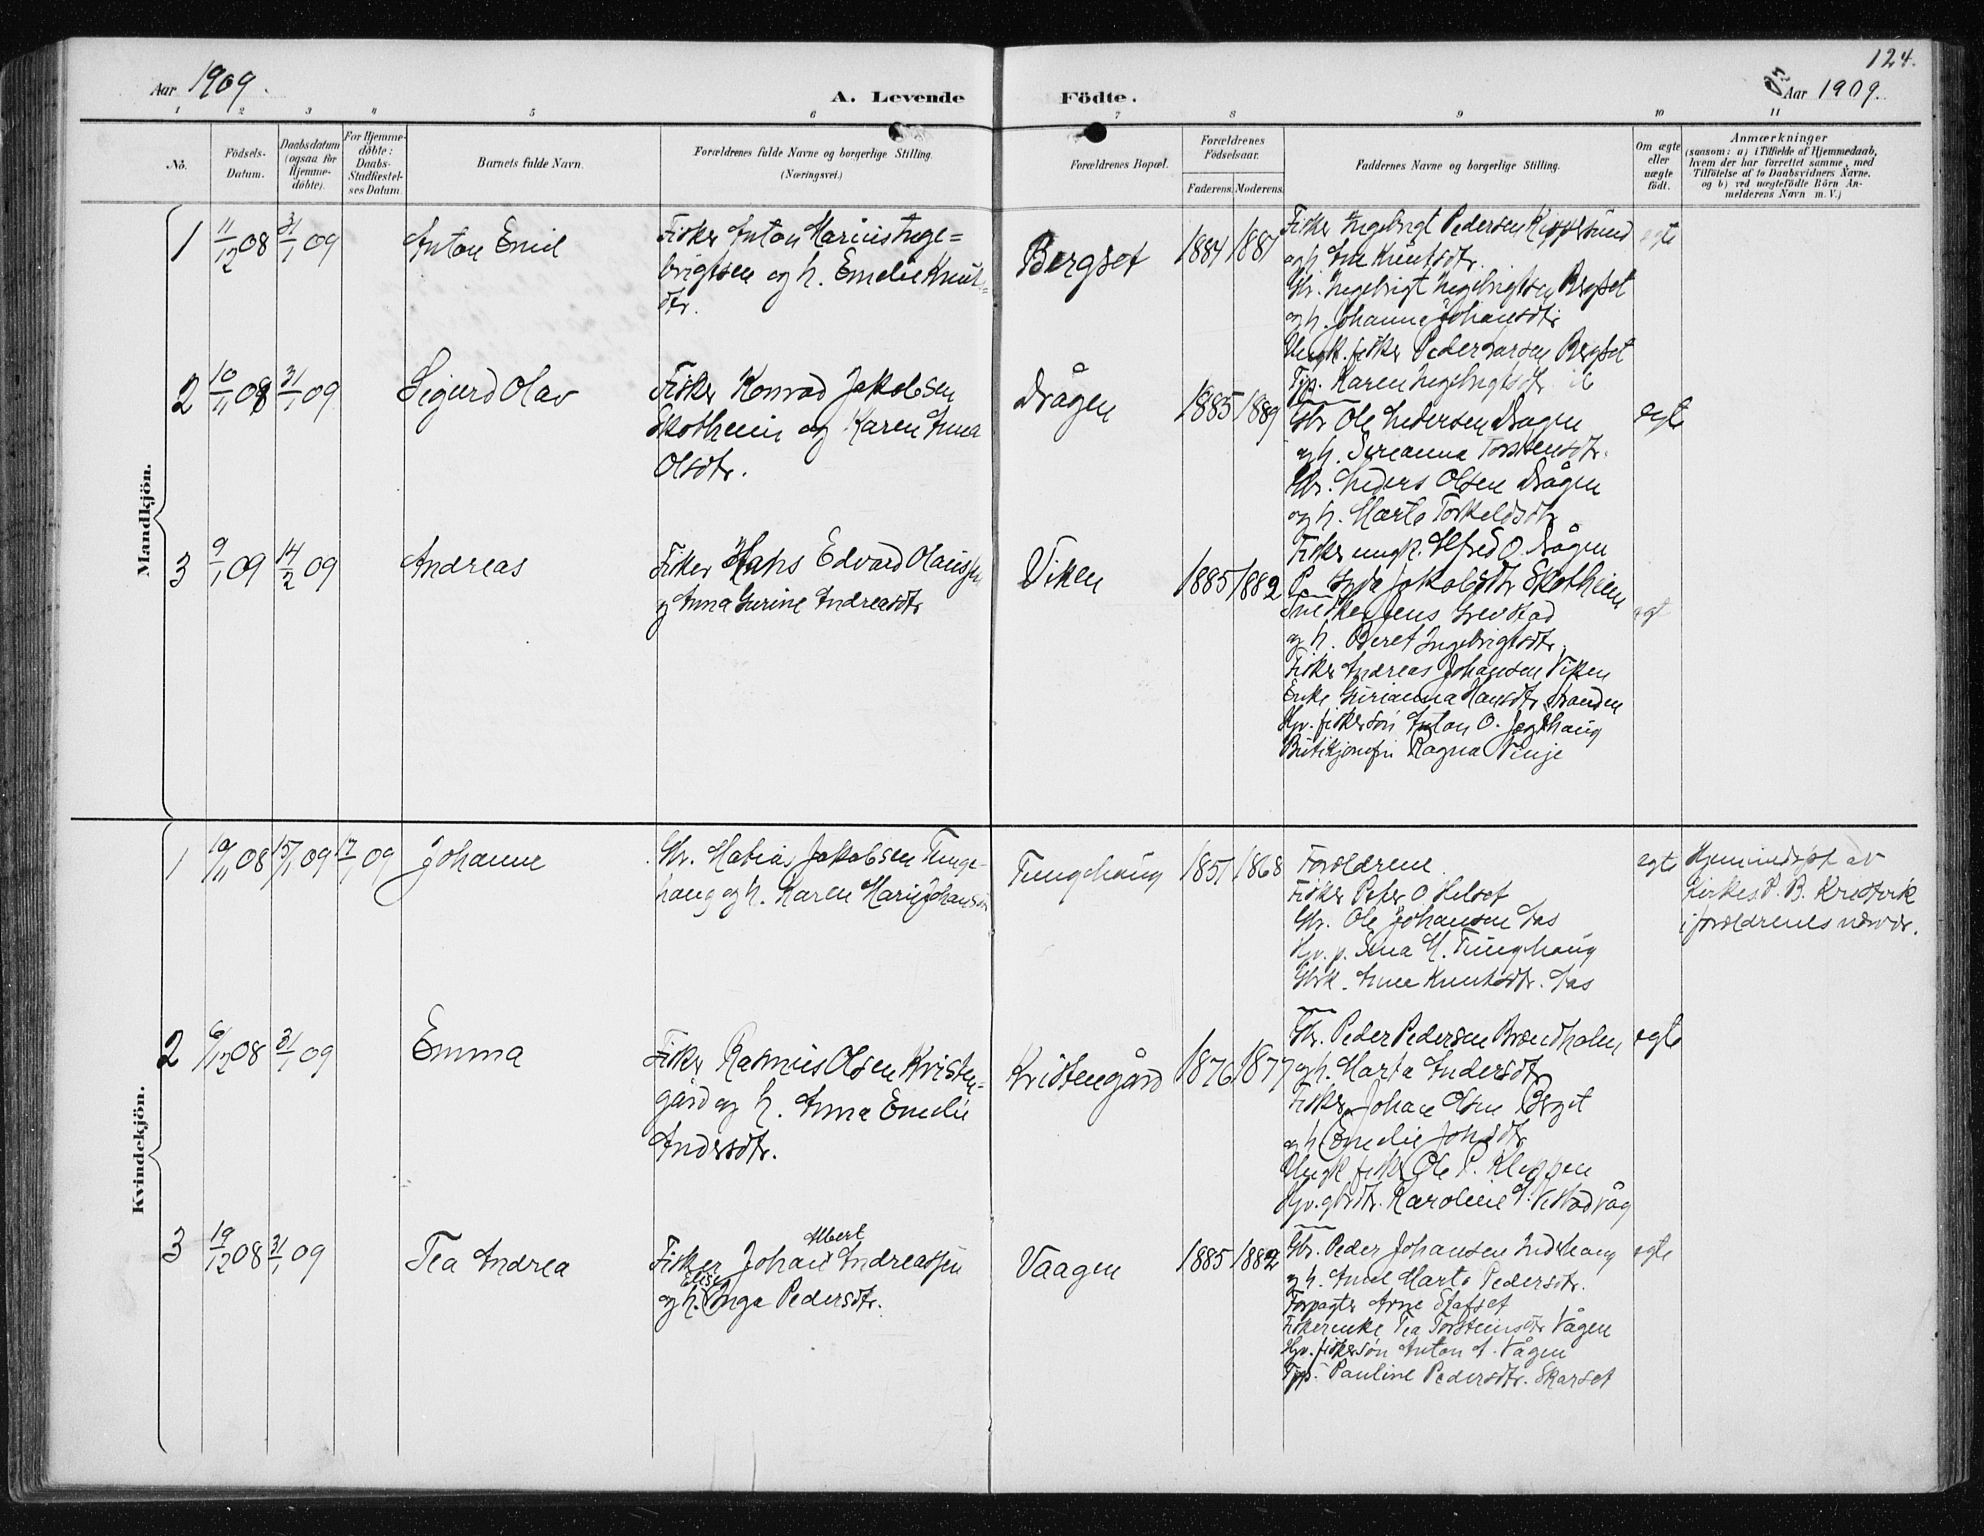 124.
Aar 1909.
A. Levende
Födte.
Aar 1909.
1 2 3 4 5 6 7 8 9 10 11
No.
Födsels-
Datum.
Daabsdatum
(ogsaa for
Hjemme-
döbte).
For Hjemme-
döbte:
Daabs-
Stadfæstel-
ses Datum.
Barnets fulde Navn.
Forældrenes fulde Navne og borgerlige Stilling.
(Næringsvei.)
Forældrenes Bopæl.
Forældrenes
Födselsaar.
Faderens. Moderens.
Faddernes Navne og borgerlige Stilling.
Om ægte
eller
uægte
födt.
Anmærkninger
(saasom: a) i Tilfælde af Hjemmedaab,
hvem der har forrettet samme, med
Tilföielse af to Daabsvidners Navne,
og b) ved uægtefödte Börn An-
melderens Navn m. V.)
Mandkjön.
1 11/12 08 31/1 09
Anton Emil
Fisker Anton Marius Inge=
brigtsen og h. Emelie Knuts=
dtr.
Bergset
1884 1887
Fisker Ingebrigt Pedersen
og h. Ane Knutsdtr.
Gbr. Ingebrigt Ingebrigtsen Bergset
og h. Johanne Johansdtr
Ungk. fisker Peder Larsen Bergset
Tjp. Karen Ingebrigtsdtr
egte
2 10/11 08 31/1 09
Sigurd Olav
Fisker Konrad Jakobsen
Skotheim og Karen Anna
Olsdtr.
Drågen
1885 1889
Gbr Ole Andersen Drågen
og h. Serianna Torstensdtr.
Gbr. Anders Olsen Drågen
og h. Marta Torkeldsdtr
Fisker ungk. Alfred O. Drågen
P. Jakobsdtr Skotheim
egte
3 9/1 09 14/2 09
Andreas
Fisker Hans Edvard Olaussen
og Anna Gurine Andreasdtr
Viken
1885 1882
Snedker Jens Grevstad
og h. Beret Ingebrigtsdtr.
Fisker Andreas Johansen Viken
Enke Gurianna Hansdtr. Stranden
Hjv. fiskersön Anton O. Jegthaug
Butikjomfru Ragna Vinje
egt
Kvindekjön.
1 10/11 08 15/1 09 17/1 09
Johanne
Gbr. Matias Jakobsen Tunge-
haug og h. Karen Marie Johansdtr
Tungehaug
1851 1868
Forældrene.
Fisker Peter O Helset
Gbr. Ole Johansen Aas
Hjv. p. Anna M. Tungehaug
Gbrk. Anne Knutsdtr. Aas
egte
Hjemmedöpt av
Kirkes. P. B. Kristvik
i forældrenes nærvær.
2 6/12 08 31/1 09
Emma
Fisker Rasmus Olsen Kristen-
gård og h. Anna Emelie
Andersdtr.
Kristengård
1876 1877
Gbr. Peder Pedersen Brændholm
og h. Marta Andersdtr
Fisker Johan Olsen Berget
og h. Emelie Johsdtr.
Ungk fisker Ole P. Kleppen
Hjv. gbrdtr. Karoline
egte
3 19/12 08 31/1 09
Tea Andrea
Albert
Fisker Johan Andreassen
Elise
og h. Inga Pedersdtr.
Vaagen
1885 1882
Gbr. Peder Johansen Inderhaug
og h. Anne Marta Pedersdtr.
Forpagter Arne Stafset
Fiskerenke Tea Torsteinsdtr Vågen
Hjv. fiskersön Anton A. Vågen
Tjp. Pauline Pedersdtr. Skarset
egte